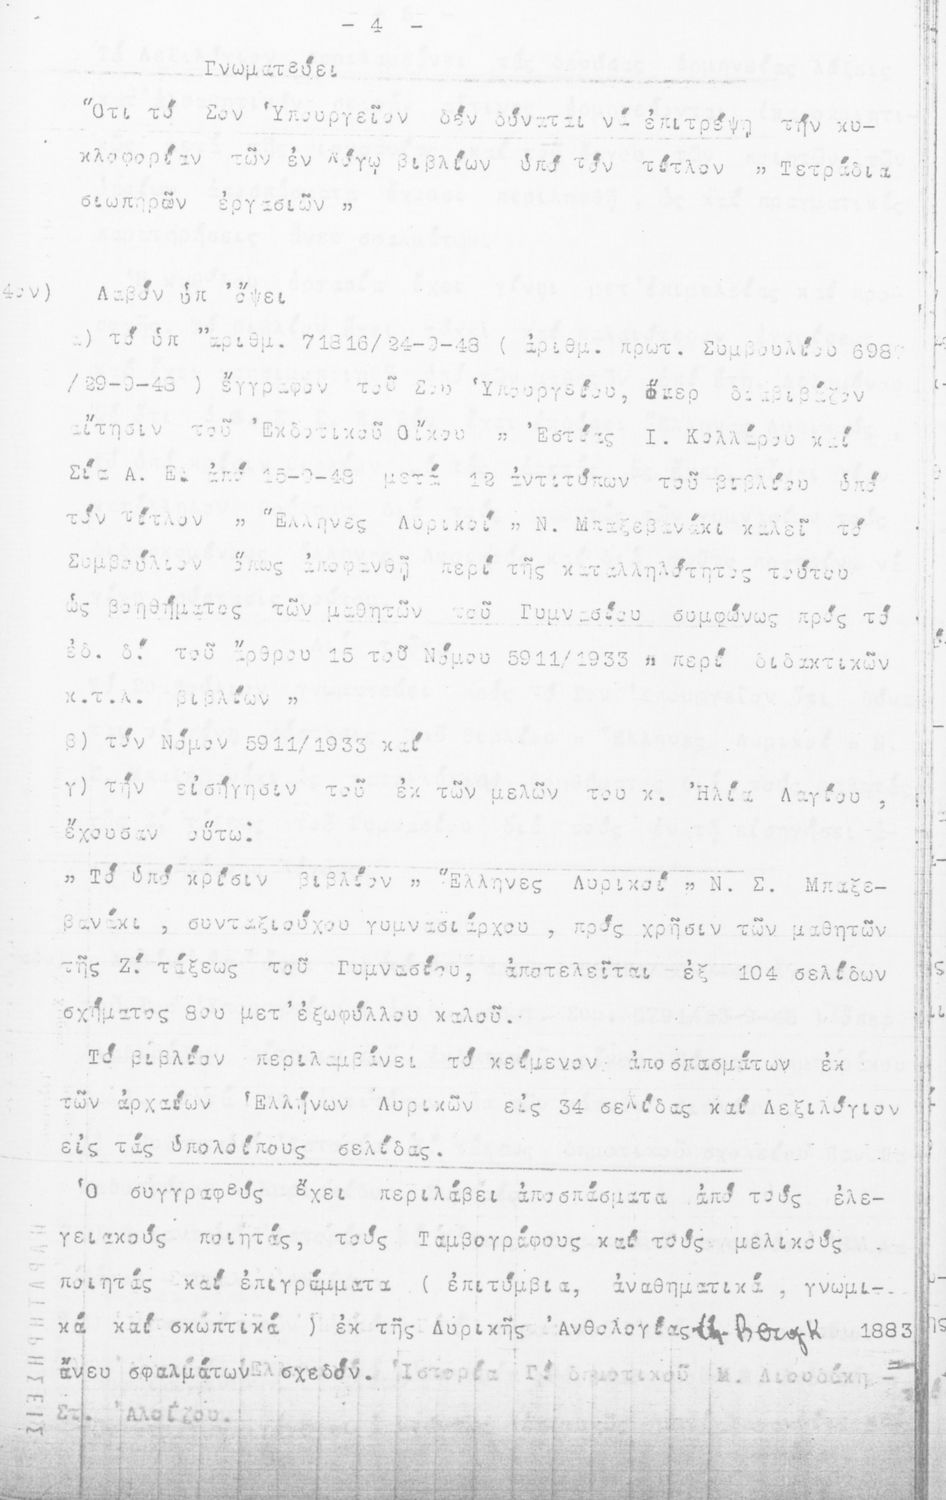 - 4 -
Γνωματεύει
Ὅτι τό Σον Ὑπουργεῖον δέν δύναται νά ἐπιτρέψῃ τήν κυ-
κλοφορίαν τῶν ἐν λόγῳ βιβλίων ὑπό τόν τίτλον „ Τετράδια
σιωπηρῶν ἐργασιῶν „
4ον) Λαβόν ὑπ᾽ὄψει
α) τό ὑπ᾽ ἀριθμ. 71816/24-9-48 ( ἀριθμ. πρωτ. Συμβουλίου 698
/29-9-48 ) ἔγγραφον τοῦ Σου Ὑπουργείου, ὅπερ διαβιβάζον
αἴτησιν τοῦ Ἐκδοτικοῦ Οἴκου „ Ἑστίας Ι. Κολλάρου καί
Σία Α. Ε. ἀπό 15-9-48 μετά 12 ἀντιτύπων τοῦ βιβλίου ὑπό
τόν τίτλον „ Ἕλληνες Λυρικοί „ Ν. Μπαξεβανάκι καλεῖ τό
Συμβούλιον ὅπως ἀποφανθῇ περί τῆς καταλληλότητος τούτου
ὡς βοηθήματος τῶν μαθητῶν τοῦ Γυμνασίου συμφώνως πρός τό
ἐδ. δ. τοῦ ἄρθρου 15 τοῦ Νόμου 5911/1933 „ περί διδακτικῶν
κ.τ.λ. βιβλίων „
β) τόν Νόμον 5911/1933 καί
γ) τήν εἰσήγησιν τοῦ ἐκ τῶν μελῶν του κ. Ἠλία Λαγίου ,
ἔχουσαν οὕτω:
„ Τό ὑπό κρίσιν βιβλίον „ Ἕλληνες Λυρικοί „ Ν. Σ. Μπαξε-
βανάκι , συνταξιούχου γυμνασιάρχου , πρός χρῆσιν τῶν μαθητῶν
τῆς Ζ. τάξεως τοῦ Γυμνασίου, ἀποτελεῖται ἐξ 104 σελίδων
σχήματος 8ου μετ᾽ἐξωφύλλου καλοῦ.
Τό βιβλίον περιλαμβάνει τό κείμενον ἀποσπασμάτων ἐκ
τῶν ἀρχαίων Ἑλλήνων Λυρικῶν εἰς 34 σελίδας καί Λεξιλόγιον
εἰς τάς ὑπολοίπους σελίδας.
Ὁ συγγραφεύς ἔχει περιλάβει ἀποσπάσματα ἀπό τούς ἐλε-
γειακούς ποιητάς, τούς Ταμβογράφους καί τούς μελικούς
ποιητάς καί ἐπιγράμματα ( ἐπιτύμβια, ἀναθηματικά , γνωμι-
κά καί σκωπτικά ) ἐκ τῆς Λυρικῆς Ἀνθολογίας 1883
ἄνευ σφαλμάτων σχεδόν. Ἱστορία Γ. δημοτικοῦ Μ. Λιουδάκη -
Στ. Ἀλοίζου.
ΠΑΡΑΤΗΡΗΣΕΙΣ